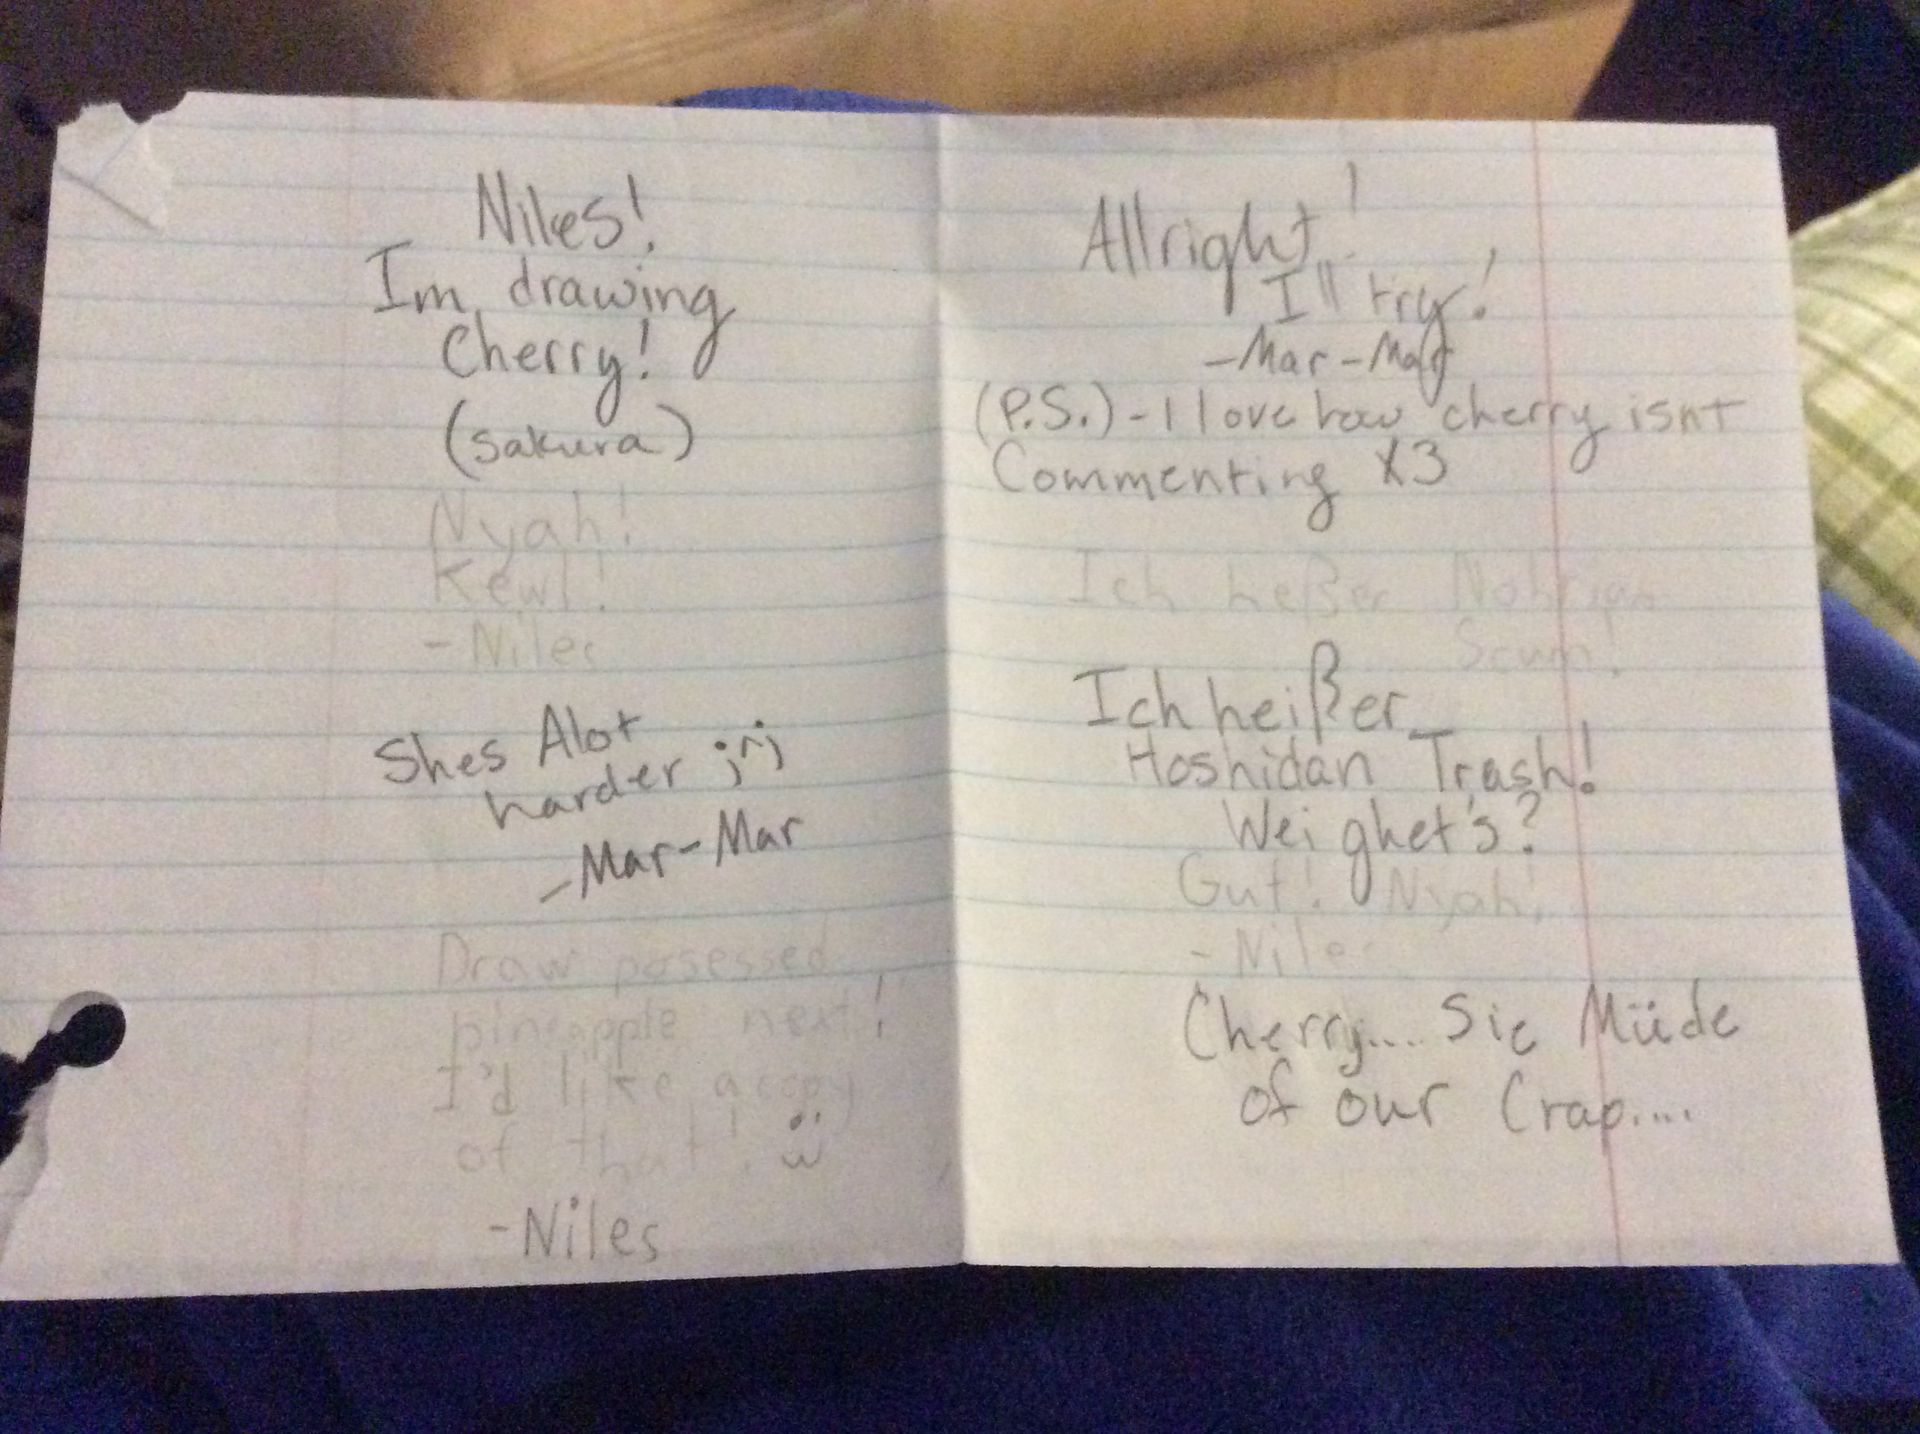 Niles!
Im drawing
Cherry!
(sakura)
Nyah!
Kewl!
-Niles
Shes Alot
harder ;n;
-Mar-Mar
Draw posessed
pineapple next!
I'd like a copy
of that! ü
-Niles
Allright!
I'll try!
-Mar-Mar
(P.S.)-I love how cherry isnt
Commenting X3
Ich heßer Nohrian
Scum!
Ich heißer
Hoshidan Trash!
Wei ghet's?
Gut! Nyah!
-Niles
Cherry.... Sie Müde
of our Crap....